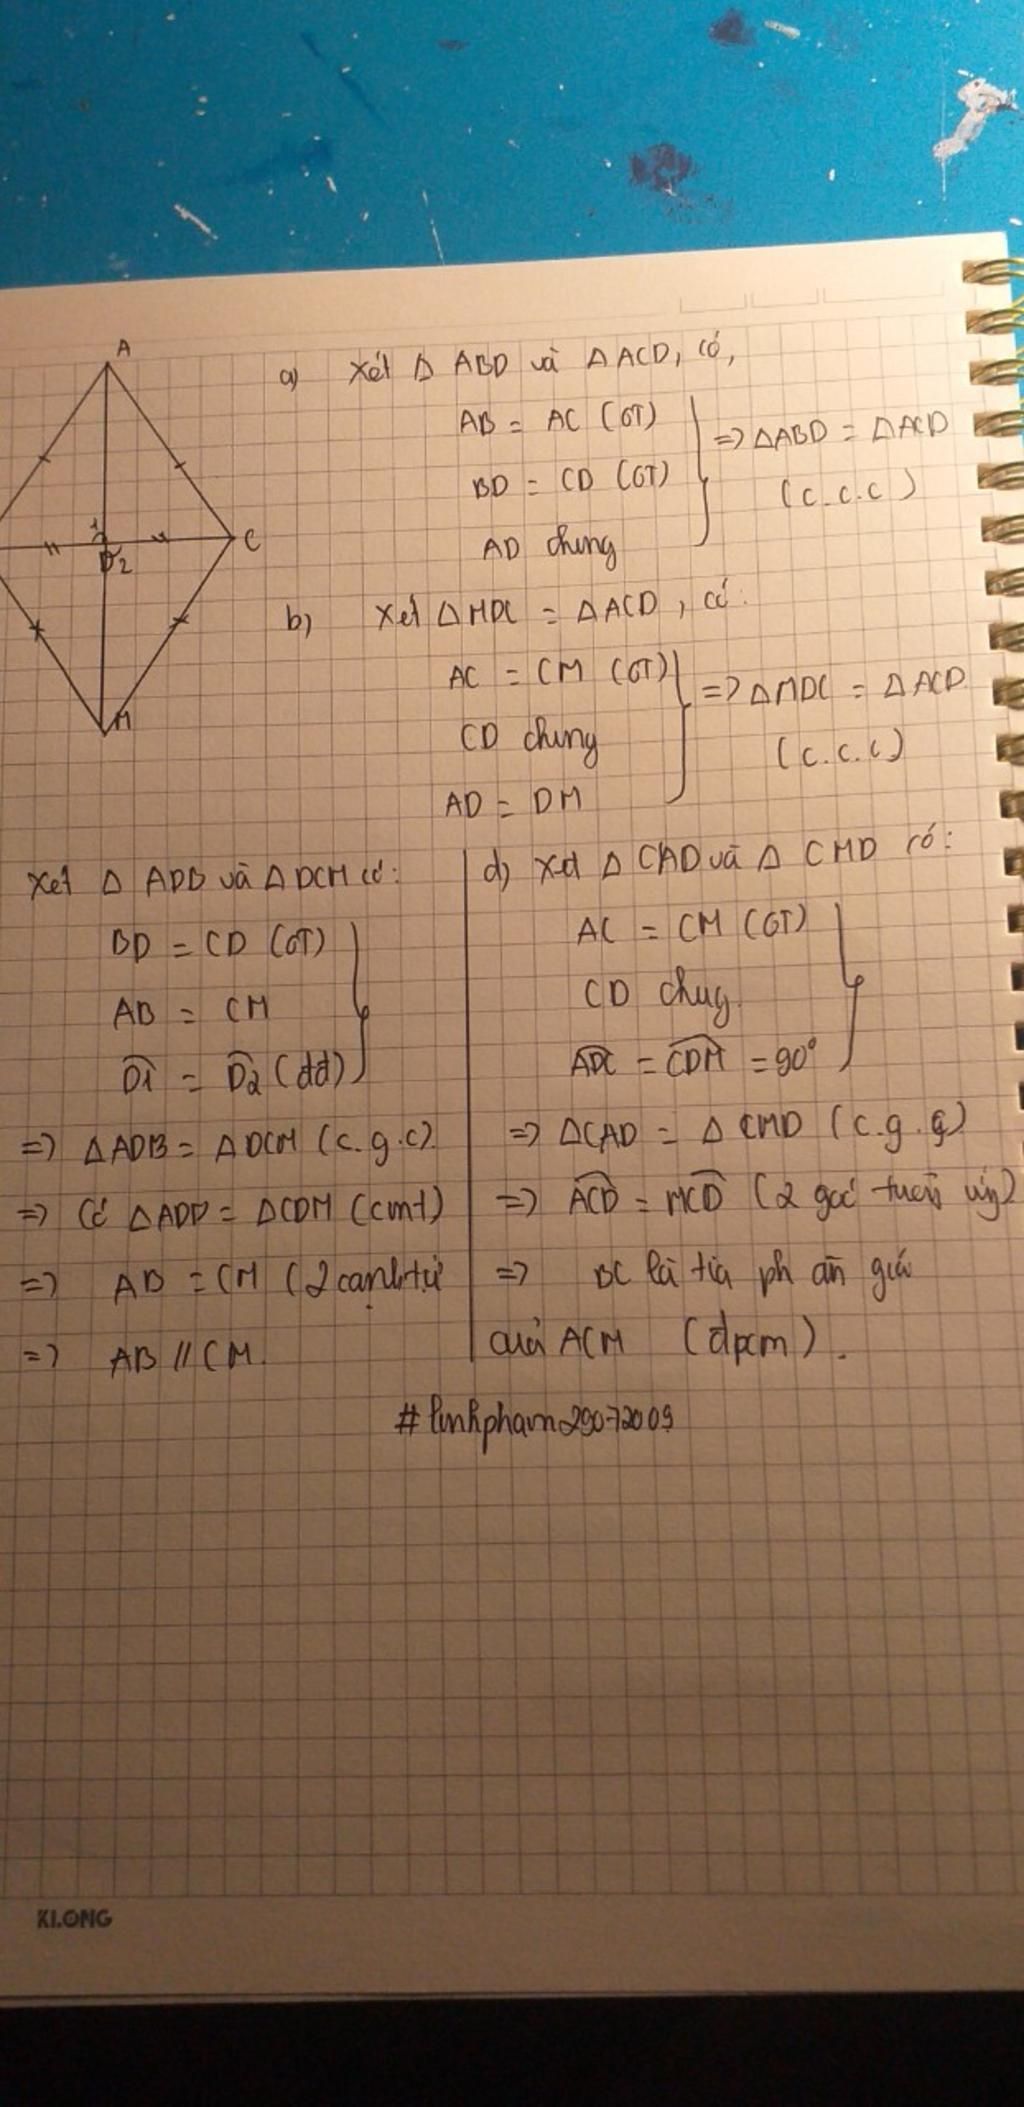 A
C
1
D 2
M
a) Xét Δ ABD và Δ ACD, có,
AB = AC (GT)
BD = CD (GT)
AD chung
=> ΔABD = ΔACD
(c.c.c)
b) Xét ΔMDC = ΔACD, có:
AC = CM (GT)
CD chung
AD = DM
=> ΔMDC = ΔACD
(c.c.c)
Xét Δ ADB và Δ DCM có:
BD = CD (GT)
AB = CM
D1 = D2 (dd)
=> ΔADB = ΔDCM (c.g.c)
=> Có ΔADB = ΔCDM (cmt)
=> AB = CM (2 cạnh tư
=> AB // CM.
d) Xét Δ CAD và Δ CMD có:
AC = CM (GT)
CD chug.
ADC = CDM = 90°
=> ΔCAD = Δ CMD (c.g.c)
=> ACD = MCD (2 góc tương ứng)
=> BC là tia ph ân giá
của ACM (đpcm).
#linhpham29072009
KLONG